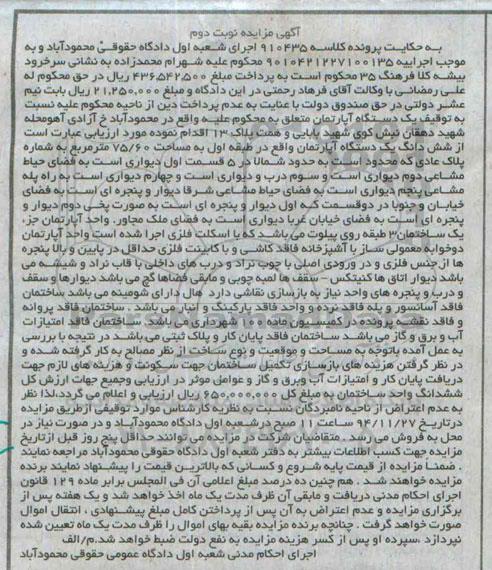 آگهی مزایده نوبت دوم
به حکایت پرونده کلاسه ۹۱۰۴۳۵ اجرای شعبه اول دادگاه حقوقی محمودآباد و به
موجب اجراییه ۹۰۱۰۴۲۱۲۲۷۱۰۰۱۳۵ محکوم علیه شهرام محمدزاده به نشانی سرخرود
بیشه کلا فرهنگ ۳۵ محکوم است به پرداخت مبلغ ۴۳۶,۵۴۲,۵۰۰ ریال در حق محکوم له
علی رمضانی با وکالت آقای فرهاد رحمتی در این دادگاه و مبلغ ۲۱,۲۵۰,۰۰۰ ریال بابت نیم
عشر دولتی در حق صندوق دولت با عنایت به عدم پرداخت دین از ناحیه محکوم علیه نسبت
به توقیف یک دستگاه آپارتمان متعلق به محکوم علیه واقع در محمودآباد خ آزادی آهومحله
شهید دهقان نبش کوی شهید بابایی و همت پلاک ۱۳ اقدام نموده مورد ارزیابی عبارت است
از شش دانگ یک دستگاه آپارتمان واقع در طبقه اول به مساحت ۷۵/۶۰ مترمربع به شماره
پلاک عادی که محدود است به حدود شمالا در ۵ قسمت اول دیواری است به فضای حیاط
مشاعی دوم دیواری است و سوم درب و دیواری است و چهارم دیواری است به راه پله
مشاعی پنجم دیواری است به فضای حیاط مشاعی شرقا دیوار و پنجره ای است به فضای
خیابان و جنوبا در دوقسمت که اول دیوار و پنجره ای است به صورت پخی دوم دیوار و
پنجره ای است به فضای خیابان غربا دیواری است به فضای ملک مجاور. واحد آپارتمان جزء
یک ساختمان ۳ طبقه روی پیلوت می باشد که با اسکلت فلزی اجرا شده است واحد آپارتمان
دوخوابه معمولی ساز با آشپزخانه فاقد کاشی و با کابینت فلزی حداقل در پایین و بالا پنجره
ها از جنس فلزی و در ورودی اصلی با چوب نراد و درب های داخلی با قاب نراد و شیشه می
باشد دیوار اتاق ها کنیتکس - سقف ها لمبه چوبی و مابقی فضاها گچ می باشد دیوارها و سقف
و درب و پنجره های واحد نیاز به بازسازی نقاشی دارد هال دارای شومینه می باشد ساختمان
فاقد آسانسور و پله فاقد نرده و واحد فاقد پارکینگ و انبار می باشد . ساختمان فاقد پروانه
و فاقد نقشه پرونده در کمیسیون ماده ۱۰۰ شهرداری می باشد. ساختمان فاقد امتیازات
آب و برق و گاز می باشد ساختمان فاقد پایان کار و پلاک ثبتی می باشد در نتیجه با بررسی
به عمل آمده باتوجه به مساحت و موقعیت و نوع ساخت از نظر مصالح به کار گرفته شده و
در نظر گرفتن هزینه های بازسازی تکمیل ساختمان جهت سکونت و هزینه های لازم جهت
دریافت پایان کار و امتیازات آب وبرق و گاز و عوامل موثر در ارزیابی وجمیع جهات ارزش کل
ششدانگ واحد ساختمان به مبلغ کل ۶۵۰,۰۰۰,۰۰۰ ریال ارزیابی و اعلام می گردد،لذا نظر
به عدم اعتراض از ناحیه نامبردگان نسبت به نظریه کارشناس موارد توقیفی ازطریق مزایده
درتاریخ ۹۴/۱۱/۲۷ ساعت ۱۱ صبح درشعبه اول دادگاه محمودآباد و در صورت نیاز در
محل به فروش می رسد . متقاضیان شرکت در مزایده می توانند حداقل پنج روز قبل ازتاریخ
مزایده جهت کسب اطلاعات بیشتر به دفتر شعبه اول دادگاه حقوقی محمودآباد مراجعه نمایند
. ضمنا مزایده از قیمت پایه شروع و کسانی که بالاترین قیمت را پیشنهاد نمایند برنده
مزایده خواهند شد . هم چنین ده درصد مبلغ اعلامی آن فی المجلس برابر ماده ۱۲۹ قانون
اجرای احکام مدنی دریافت و مابقی آن ظرف مدت یک ماه اخذ خواهد شد و یک هفته پس از
برگزاری مزایده و عدم اعتراض به آن پس از پرداختن کامل مبلغ پیشنهادی ، انتقال اموال
صورت خواهد گرفت . چنانچه برنده مزایده بقیه بهای اموال را ظرف مدت یک ماه تعیین شده
نپردازد .سپرده او پس از کسر هزینه مزایده به نفع دولت ضبط خواهد شد.م/الف
اجرای احکام مدنی شعبه اول دادگاه عمومی حقوقی محمودآباد